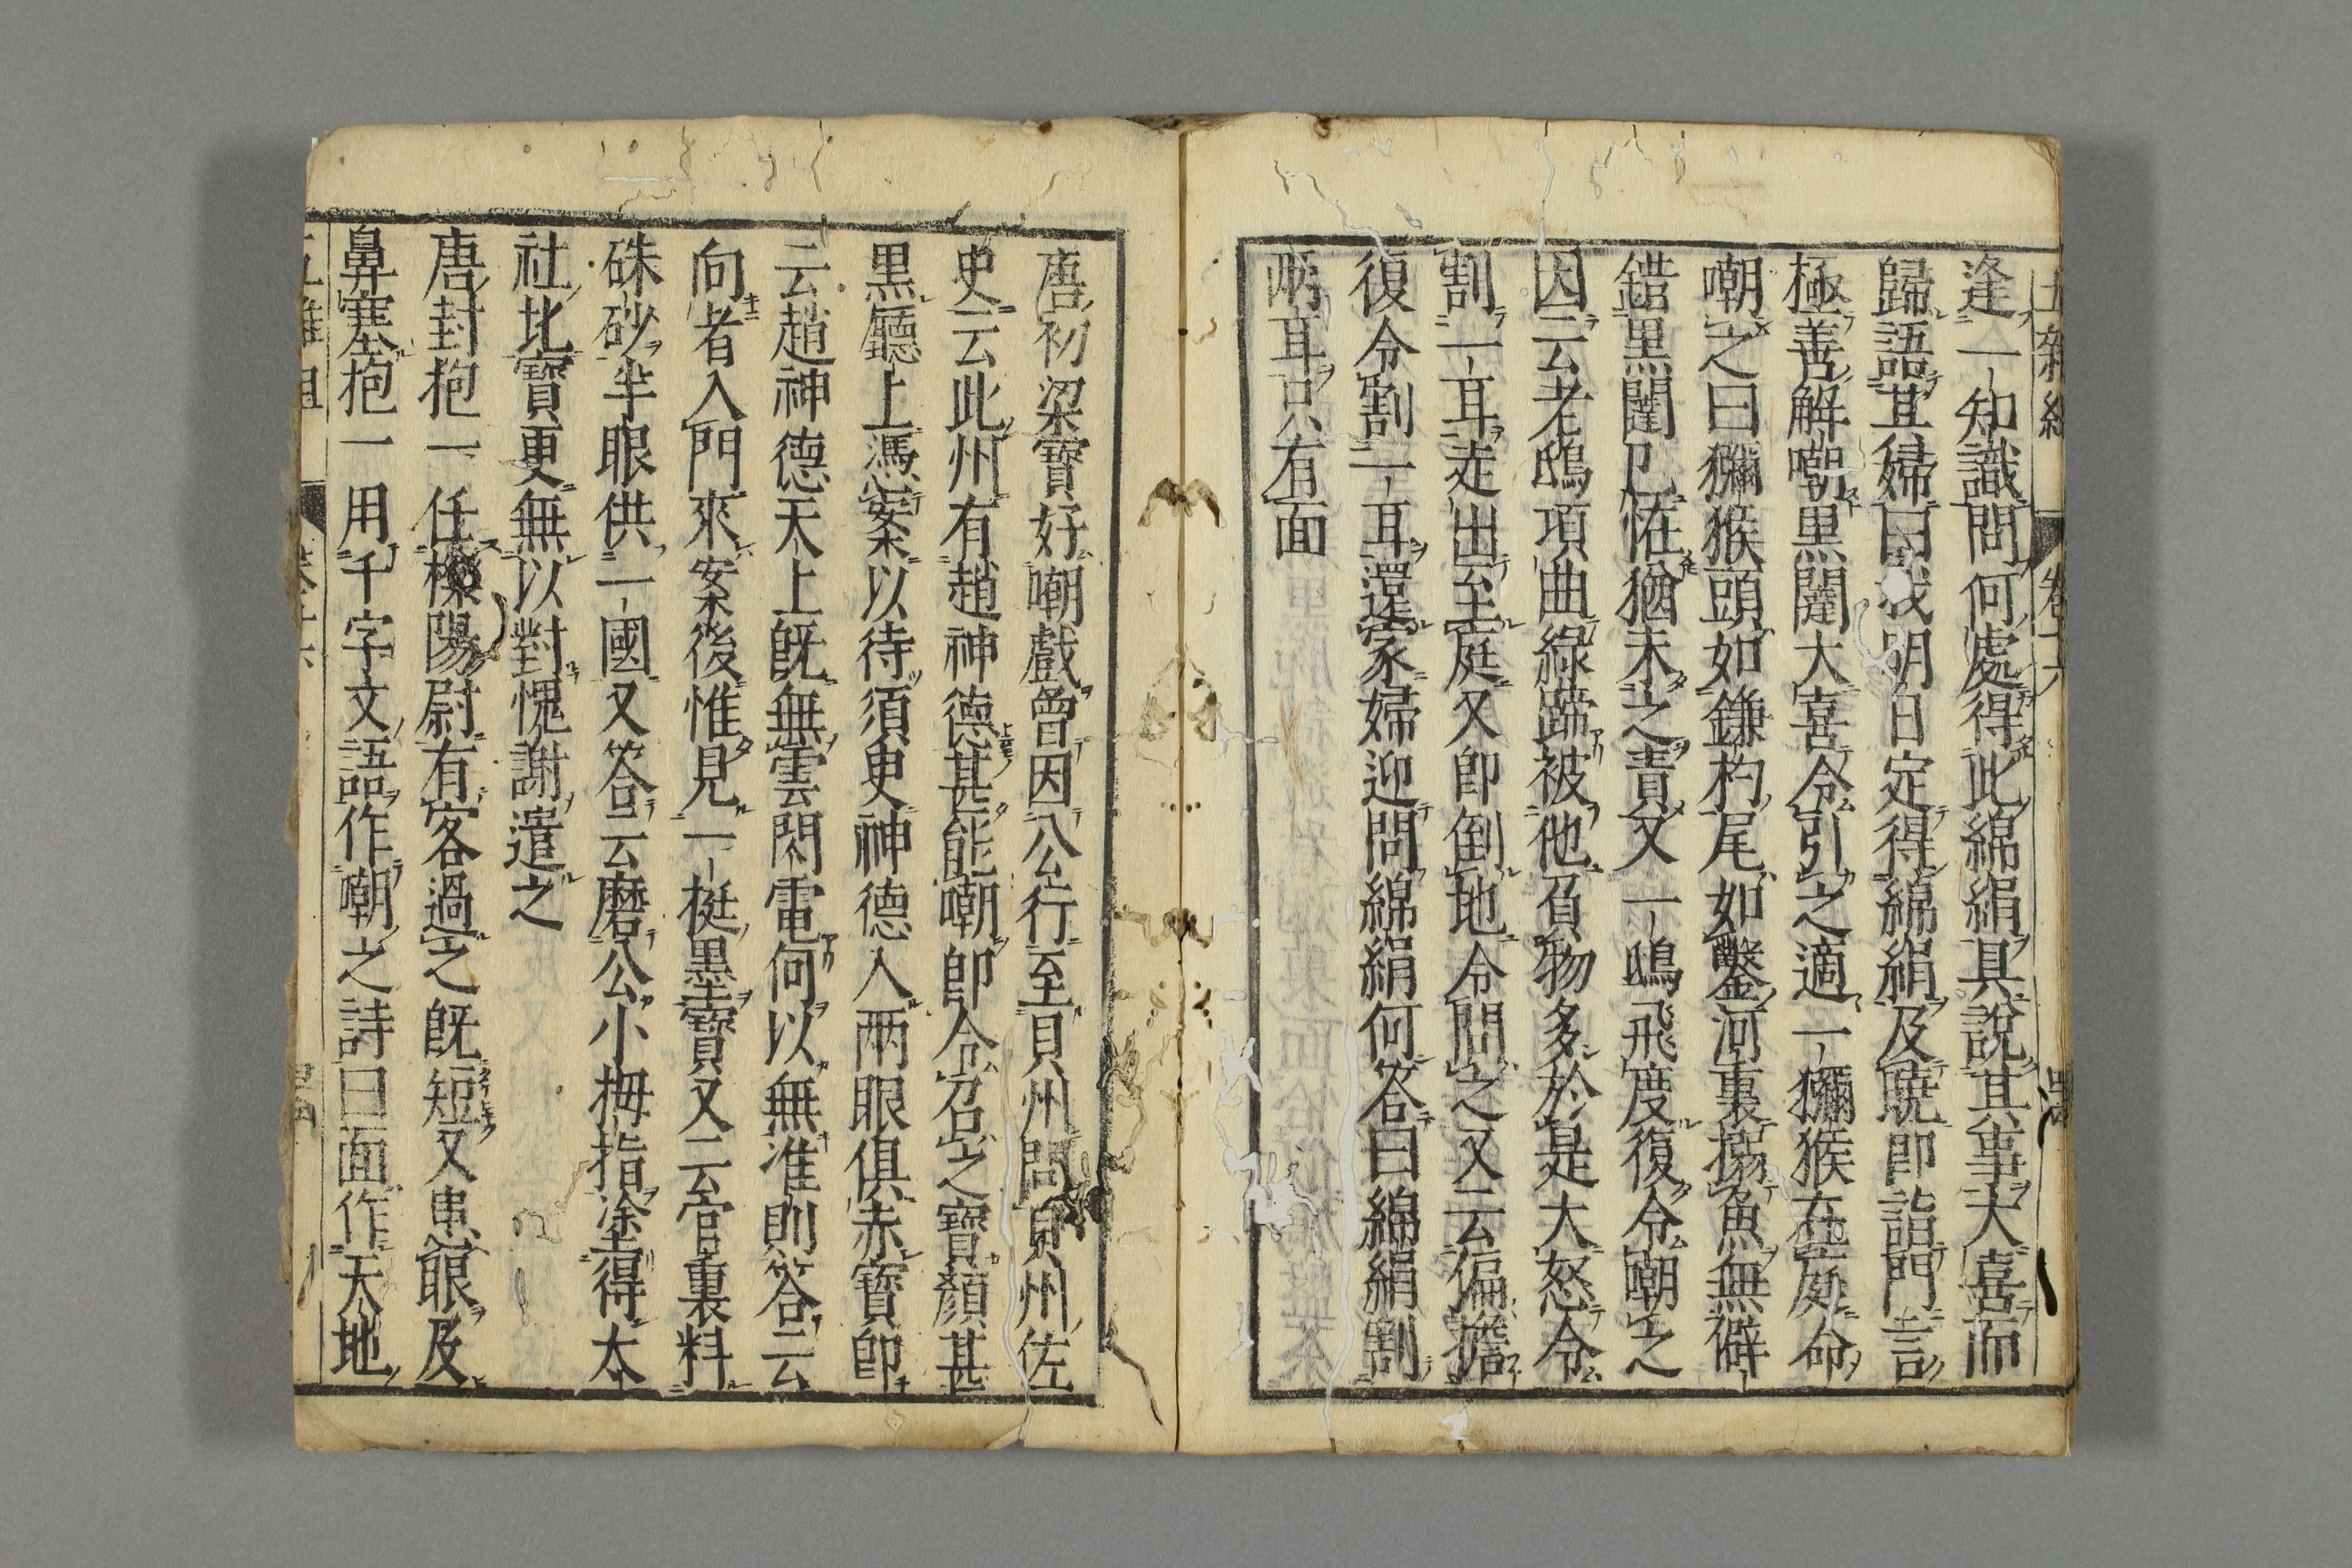 逢一知識問何處得此綿絹具說其事大喜而
歸語其婦曰我明日定得綿絹及曉卽詣門言
極善解嘲黒闥大喜令引之適一獼猴在庭命
嘲之曰獼猴頭如鎌杓尾如鑿河裏搦魚無僻
錯黒闥已恠猶未之責又一鴟飛度復令嘲之
因云老鴟項曲綠蹄被他負物多於是大怒令
割一耳走出至庭又卽倒地令問之又云偏擔
復令割一耳還家婦迎問綿絹何答曰綿絹割
兩耳只有面
唐初梁寶好嘲戲曾因公行至貝州問貝州佐
史云此州有趙神德甚能嘲卽令召之寶顏甚
黒廳上憑案以待須史神德入兩眼俱赤寶卽
云趙神德天上既無雲閃電何以無准則答云
向者入門來案後惟見一挺墨寶又云官裏料
硃砂半眼供一國又答云磨公小拇指塗得太
社北寶更無以對愧謝遣之
唐封抱一任櫟陽尉有客過之既短又患眼及
鼻塞抱一用千字文語作嘲之詩曰面作天地